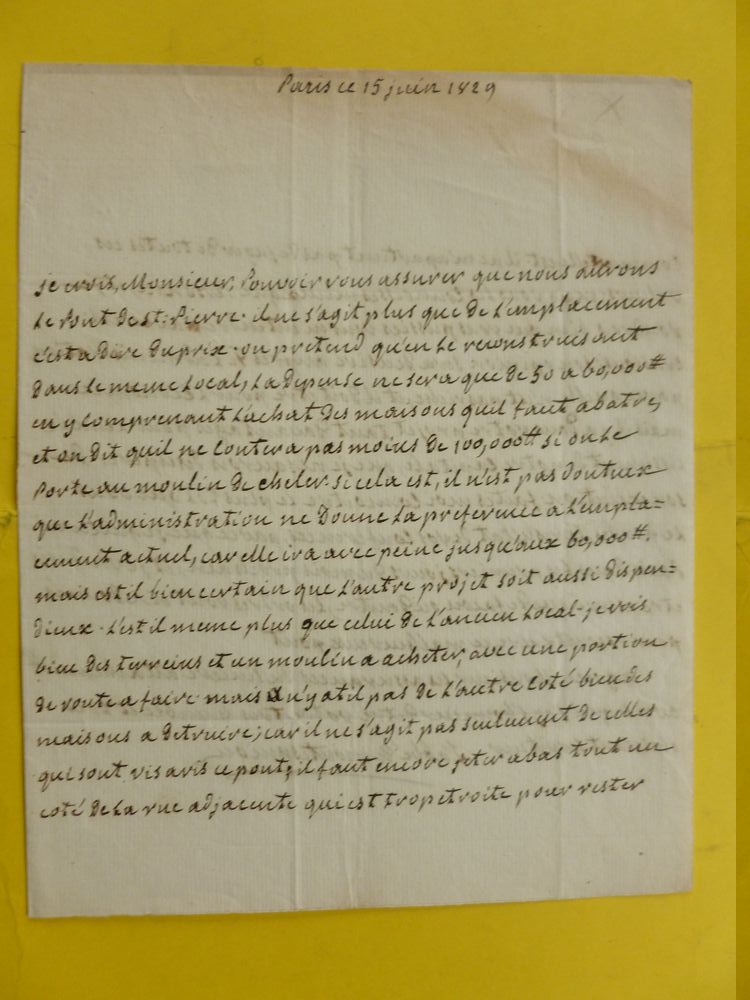 Paris ce 15 juin 1829
je crois, Monsieur, Pouvoir vous assurer que nous aurons
le Pont de st. Pierre. il ne s'agit plus que de l'emplacement
c'est a dire du prix. on pretend qu'en le reconstruisant
Dans le meme local, la depense ne sera que de 50 a 60,000#
en y comprenant l'achat des maisons quil faut abatre,
et on dit quil ne coutera pas moins de 100,000# si on le
Porte au moulin de si cela est, il n'est pas douteux
que l'administration ne Donne la preference a l'empla=
cement actuel, car elle ira avec peine jusqu'aux 60,000#.
mais est il bien certain que l'autre projet soit aussi dispen=
dieux. l'est il meme plus que celui de l'ancien local. je vois
bien des terreins et un moulin a acheter, avec une portion
de route a faire mais n'y at il pas de l'autre coté bien des
maisons a detruire; car il ne s'agit pas seulement de celles
qui sont vis a vis ce pont; il faut encore jeter a bas tout un
coté de la rue adjacente qui est trop etroite pour rester